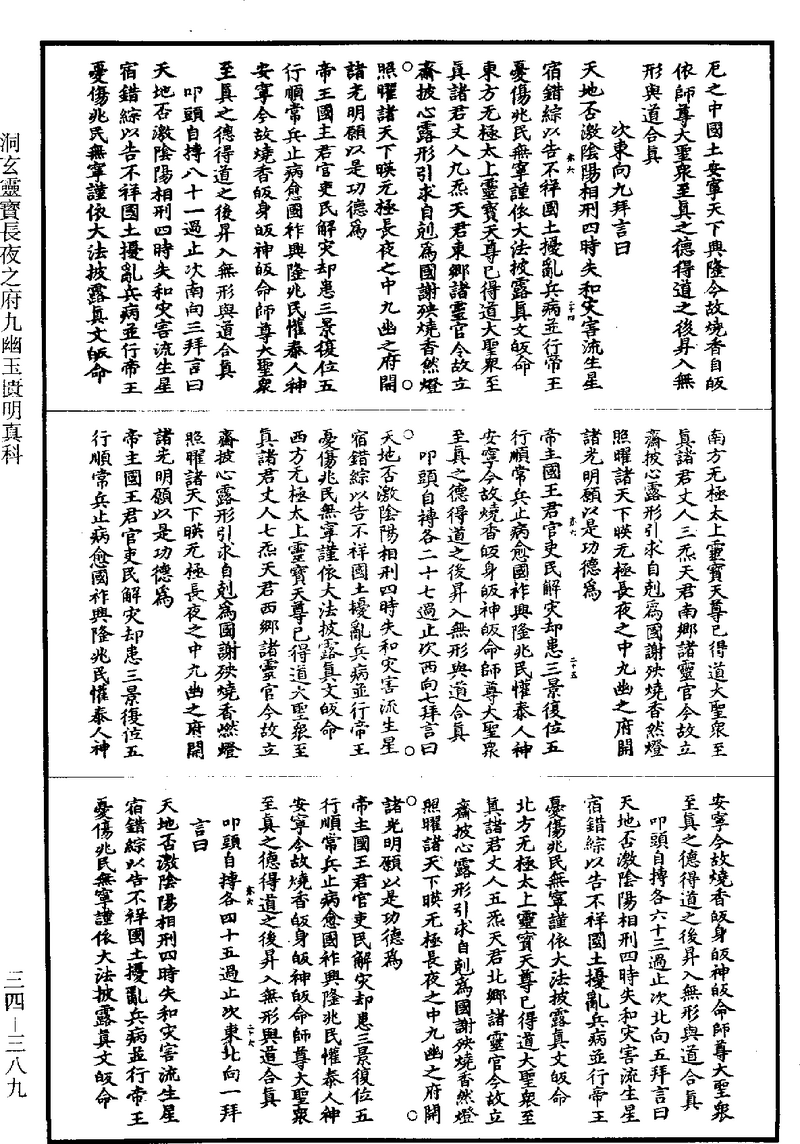 厄之中國土安寧天下興隆今故燒香自皈
依師尊大聖衆至真之德得道之後昇入無
形與道合真
次東向九拜言曰
天地否激陰陽相刑四時失和灾害流生星
宿錯綜以告不祥國土擾亂兵病並行帝王
憂傷兆民無寧謹依大法披露真文皈命
東方无極太上靈寶天尊已得道大聖衆至
真諸君丈人九炁天君東鄉諸靈官今故立
齋披心露形引求自剋爲國謝殃燒香然燈
照曜諸天下暎无極長夜之中九幽之府開
諸光明願以是功德爲
帝王國主君官吏民解灾却患三景復位五
行順常兵止病愈國祚興隆兆民懽泰人神
安寧今故燒香皈身皈神皈命師尊大聖衆
至真之德得道之後昇入無形與道合真
叩頭自摶八十一過止次南向三拜言曰
天地否激陰陽相刑四時失和灾害流生星
宿錯綜以告不祥國土擾亂兵病並行帝王
憂傷兆民無寧謹依大法披露真文皈命
南方无極太上靈寶天尊已得道大聖衆至
真諸君丈人三炁天君南鄉諸靈官今故立
齋披心露形引求自剋爲國謝殃燒香然燈
照曜諸天下暎无極長夜之中九幽之府開
諸光明願以是功德爲
帝主國王君官吏民解灾却患三景復位五
行順常兵止病愈國祚興隆兆民懽泰人神
安寧今故燒香皈身皈神皈命師尊大聖衆
至真之德得道之後昇入無形與道合真
叩頭自摶各二十七過止次西向七拜言曰
天地否激陰陽相刑四時失和灾害流生星
宿錯綜以告不祥國土擾亂兵病並行帝王
憂傷兆民無寧謹依大法披露真文皈命
西方无極太上靈寶天尊已得道大聖衆至
真諸君丈人七炁天君西鄉諸靈官今故立
齋披心露形引求自剋爲國謝殃燒香燃燈
照曜諸天下暎无極長夜之中九幽之府開
諸光明願以是功德爲
帝主國王君官吏民解灾却患三景復位五
行順常兵止病愈國祚興隆兆民懽泰人神
安寧今故燒香皈身皈神皈命師尊大聖衆
至真之德得道之後昇入無形與道合真
叩頭自摶各六十三過止次北向五拜言曰
天地否激陰陽相刑四時失和灾害流生星
宿錯綜以告不祥國土擾亂兵病並行帝王
憂傷兆民無寧謹依大法披露真文皈命
北方无極太上靈寶天尊已得道大聖衆至
真諸君丈人五炁天君北鄉諸靈官今故立
齋披心露形引求自剋爲國謝殃燒香然燈
照曜諸天下暎无極長夜之中九幽之府開
諸光明願以是功德爲
帝主國王君官吏民解灾却患三景復位五
行順常兵止病愈國祚興隆兆民懽泰人神
安寧今故燒香皈身皈神皈命師尊大聖衆
至真之德得道之後昇入無形與道合真
叩頭自摶各四十五過止次東北向一拜
言曰
天地否激陰陽相刑四時失和灾害流生星
宿錯綜以告不祥國土擾亂兵病並行帝王
憂傷兆民無寧謹依大法披露真文皈命
洞玄靈寶長夜之府九幽玉匱明真科
三四—三八九